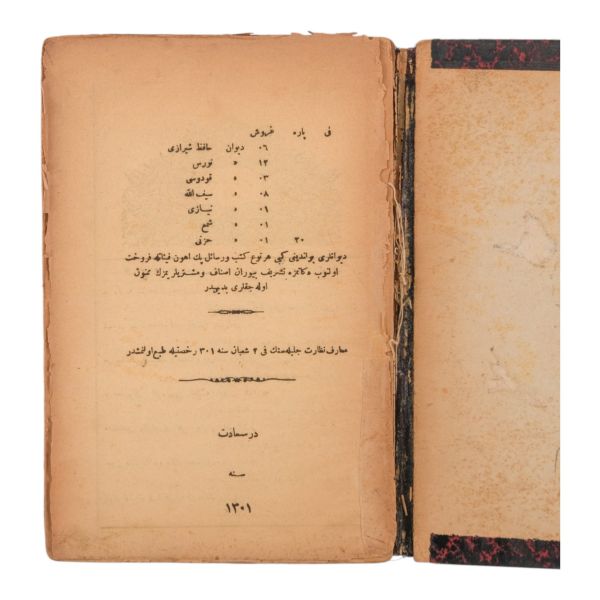 فی پاره غروش
۰۶ دیوان حافظ شیرازی
۱۲ » نورس
۰۳ » قودوسی
۰۸ » سیف الله
۰۹ » نیازی
۰۱ » شمع
۳۰ ۰۱ » حزنی
دیوانلری بولندیغی کبی هر نوع کتب و رسائل پك اهون فیئاتله فروخت
اولنوب دکانمزه تشریف بیوران اصناف و مشتریلریمزك ممنون
اوله جقلری بدیهیدر
معارف نظارت جلیله سنك فی ۲ شعبان سنه ۳۰۱ رخصتیله طبع اولنمشدر
در سعادت
سنه
۱۳۰۱